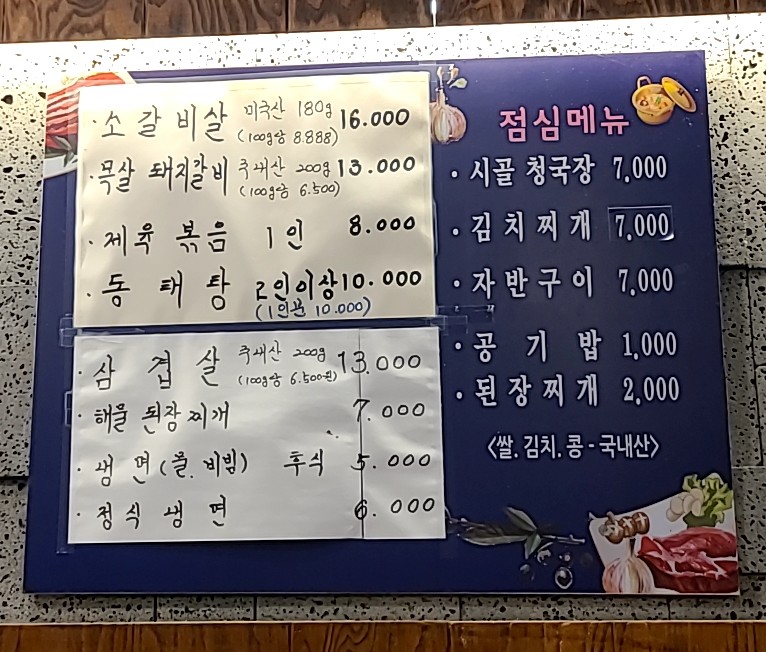 · 소갈비살 미국산 180g 16.000
(100g당 8.888)
· 목살 돼지갈비 국내산 200g 13.000
(100g당 6.500)
· 제육 볶음 1인 8.000
· 동태탕 2인이상 10.000
(1인분 10.000)
· 삼겹살 국내산 200g 13.000
(100g당 6.500원)
· 해물 된장찌개 7.000
· 냉면(물.비빔) 후식 5.000
· 정식냉면 6.000
점심메뉴
· 시골 청국장 7,000
· 김치찌개 7,000
· 자반구이 7,000
· 공기밥 1,000
· 된장찌개 2,000
<쌀.김치.콩-국내산>